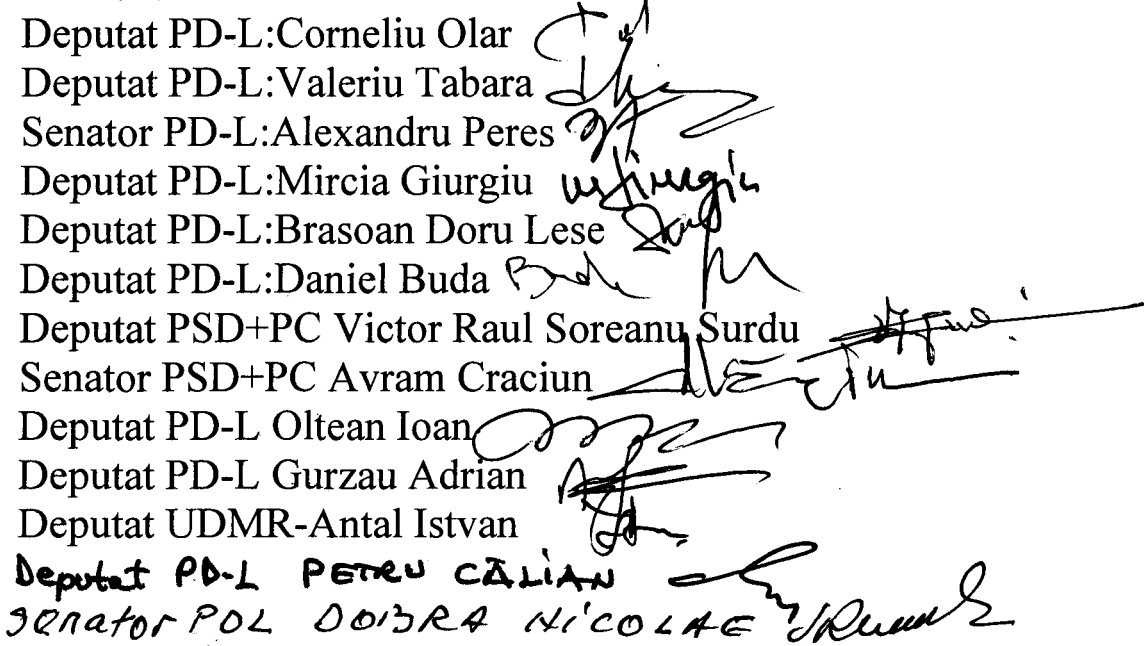 Deputat PD-L:Corneliu Olar
Deputat PD-L:Valeriu Tabara
Senator PD-L:Alexandru Peres
Deputat PD-L:Mircia Giurgiu
Deputat PD-L:Brasoan Doru Lese
Deputat PD-L:Daniel Buda
Deputat PSD+PC Victor Raul Soreanu Surdu
Senator PSD+PC Avram Craciun
Deputat PD-L Oltean Ioan
Deputat PD-L Gurzau Adrian
Deputat UDMR-Antal Istvan
Deputat PD-L PETRU CĂLIAN
Senator PDL DOBRA NICOLAE